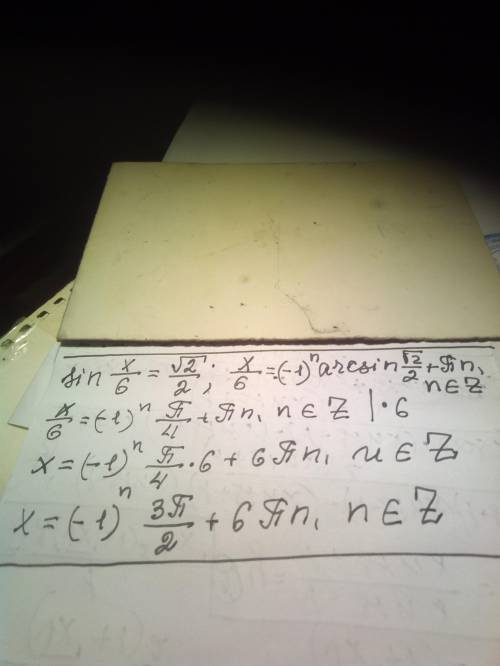 sin x/6 = √2/2; x/6 = (-1)ⁿ arcsin √2/2 + πn, n ∈ Z
x/6 = (-1)ⁿ π/4 + πn, n ∈ Z | · 6
x = (-1)ⁿ π/4 · 6 + 6πn, n ∈ Z
x = (-1)ⁿ 3π/2 + 6πn, n ∈ Z